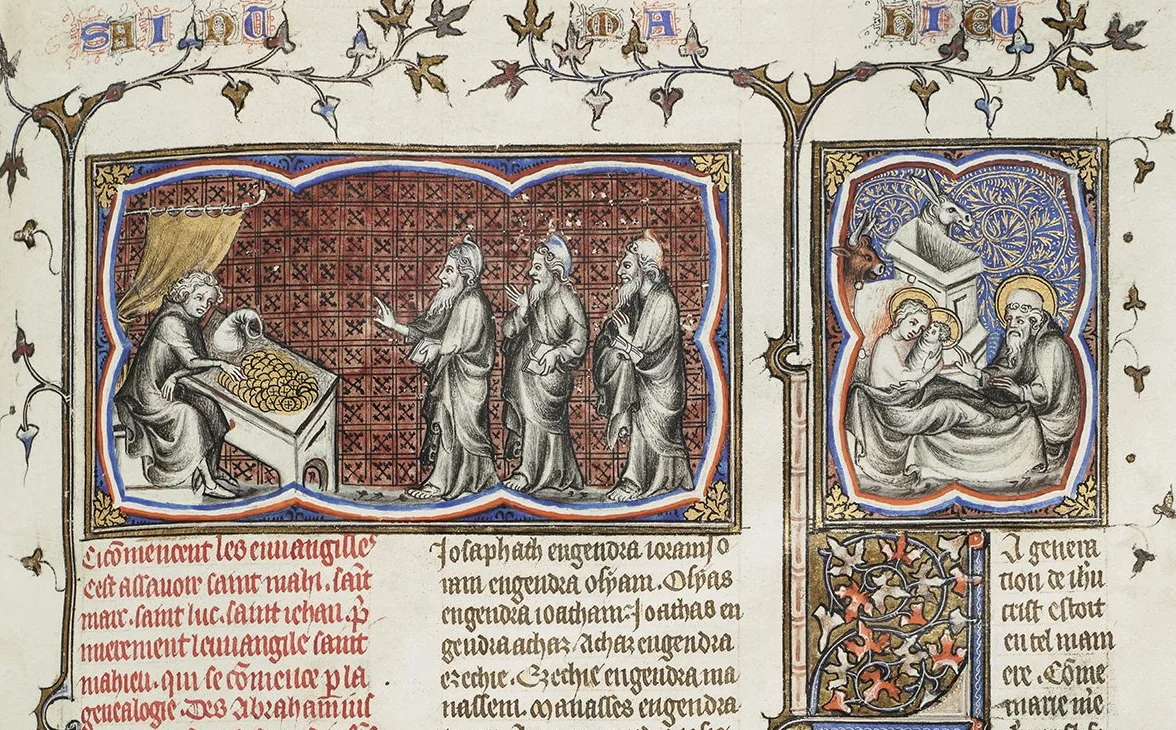 SAINT MAHIEU
Ci cōmencent les euuangilles
Cest assauoir saint mahi. sait
marc. saint luc. saint iehan. p̄
mierement leuuangile saint
mahieu. qui se cōmence p la
genealogie. Des Abraham ius
Iosaphath engendra ioram Io
ram engendra osyam. Osyas
engendra ioatham. Ioathas en
gendra achaz. Achaz engendra
ezechie. Ezechie engendra ma
nassem. Manasses engendra
A genera
tion de ihū
crist estoit
en tel mani
ere. Cōme
marie me